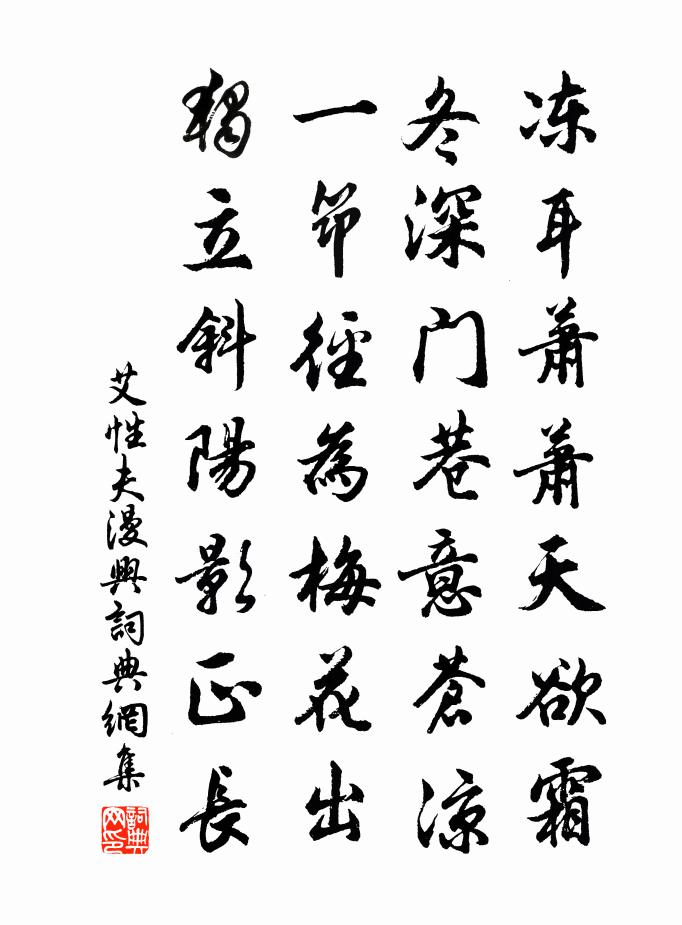 冻耳萧萧天欲霜
冬深门巷意苍凉
一笻径為梅花出
獨立斜陽影正長
艾性夫漫興詞典網集
詞典网印